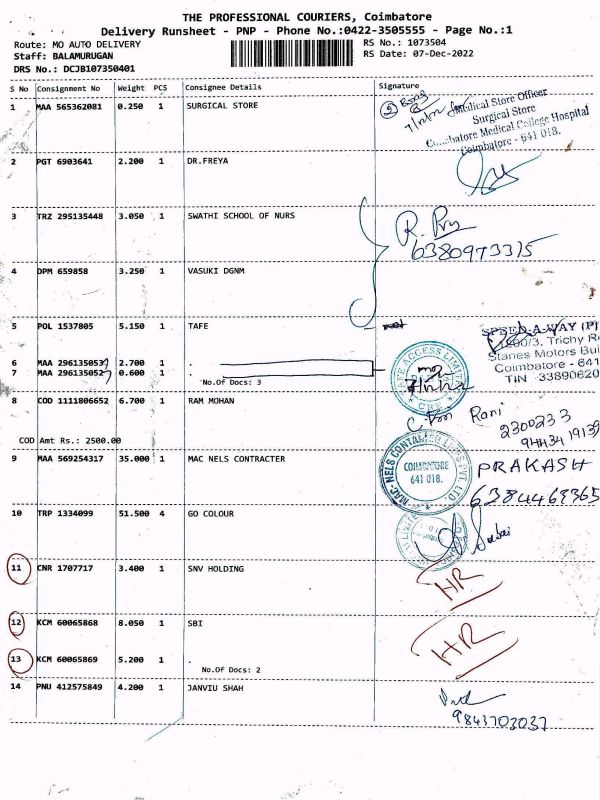 THE PROFESSIONAL COURIERS, Coimbatore
Delivery Runsheet - PNP - Phone No.:0422-3505555 - Page No.:1
Route: MO AUTO DELIVERY RS No.: 1073504
Staff: BALAMURUGAN RS Date: 07-Dec-2022
DRS No.: DCJB107350401
S No Consignment No Weight PCS Consignee Details Signature
1 MAA 565362081 0.250 1 SURGICAL STORE
Medical Store Officer
Surgical Store
Coimbatore Medical College Hospital
Coimbatore - 641 018.
2 PGT 6903641 2.200 1 DR.FREYA
3 TRZ 295135448 3.050 1 SWATHI SCHOOL OF NURS
6380973315
4 DPM 659858 3.250 1 VASUKI DGNM
5 POL 1537805 5.150 1 TAFE
SPEED-A-WAY (P)
Trichy R
Stanes Motors Bui
Coimbatore - 641
TIN 33890620
6 MAA 296135053 2.700 1 .
7 MAA 296135052 0.600 1 .
No.Of Docs: 3
8 COD 1111806652 6.700 1 RAM MOHAN
Rani
2300233
COD Amt Rs.: 2500.00
9 MAA 569254317 35.000 1 MAC NELS CONTRACTER
COIMBATORE
641 018.
PRAKASH
10 TRP 1334099 51.500 4 GO COLOUR
11 CNR 1707717 3.400 1 SNV HOLDING
HR
12 KCM 60065868 8.050 1 SBI
HR
13 KCM 60065869 5.200 1 .
No.Of Docs: 2
14 PNU 412575849 4.200 1 JANVIU SHAH
9841703037